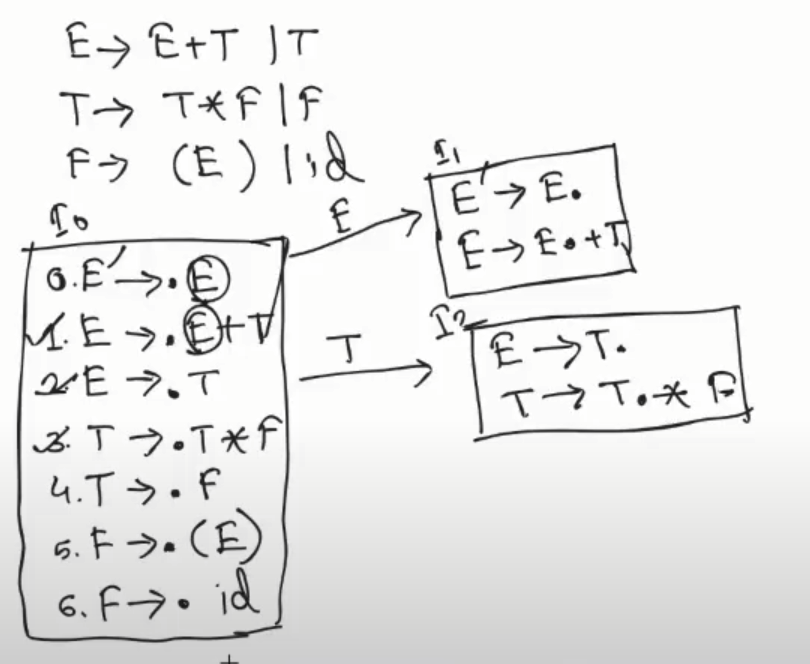 E→ E+T | T
T→ T*F | F
F→ (E) | id
I₀
0. E'→.E
1. E →.E+T
2. E →.T
3. T →.T*F
4. T →. F
5. F →. (E)
6. F →. id
E
I₁
E' → E.
E → E.+T
T
I₂
E → T.
T → T.* F